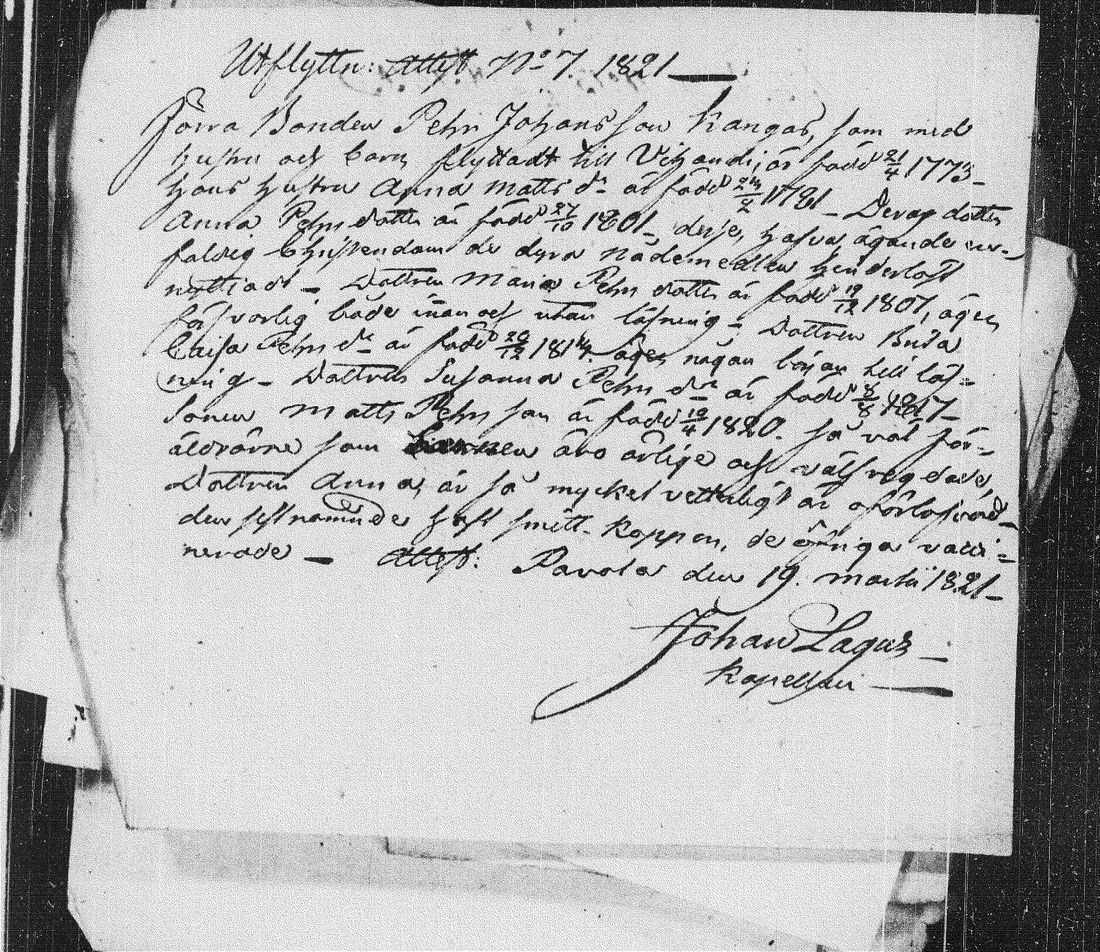 Utflyttn: Attest No 7. 1821 —
Förra Bonden Pehr Johansson Kangas, som med
hustru och barn flyttadt till Vihandi, är född 21/4 1773 –
Hans hustru Anna Matts dr är född 24/2 1781 – Deras dotter
Anna Pehrsdotter är född 27/10 1801 – desse, hafva ägande en-
faldig Christendom de dyra nådemedlen hinderlöst
nyttjadt – Dottren Maria Pehrsdotter är född 19/12 1807, äger
försvarlig både innan och utan läsning – Dottren Brita
Caisa Pehrs dr är född 20/12 1814. äger någon början till läs-
ning – Dottren Susanna Pehrs dr är född 8/8 1817 –
Sonen Matts Pehrsson är född 19/4 1820. Så väl för-
äldrarne som barnen äro ärlige och välfregdade,
Dottren Anna, är så mycket vetterligt är oförlofvad –
den sistnämnde haft smitt-koppor, de öfriga vacci-
nerade — Attest: Pavola den 19. Martii 1821 –
Johan Lagus –
Kapellan —